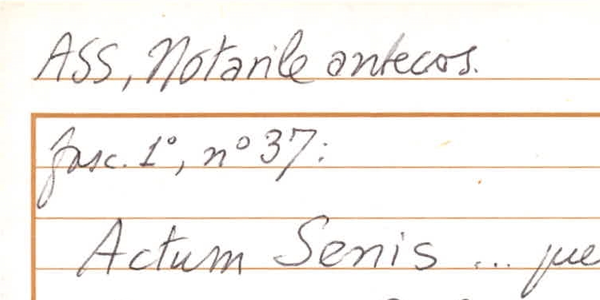 ASS, Notarile antecos.
fasc. 1°, n° 37:
Actum Senis ...